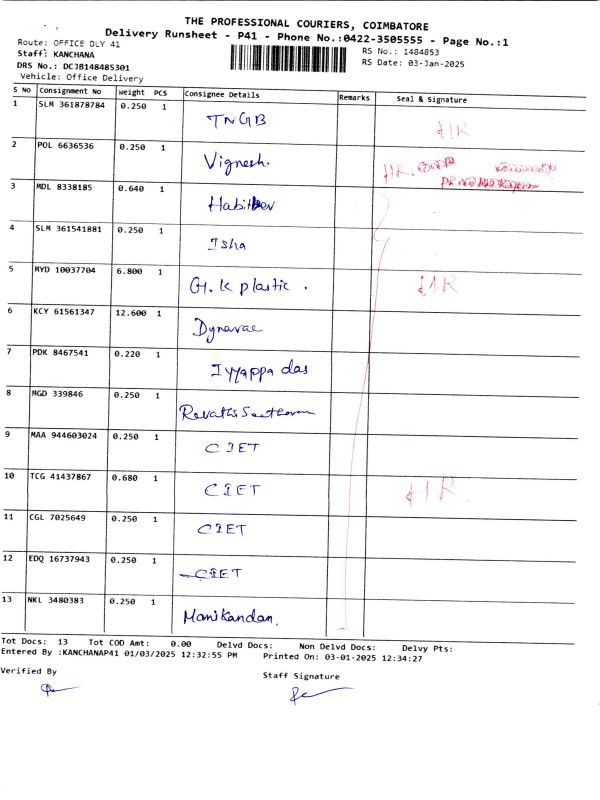 THE PROFESSIONAL COURIERS, COIMBATORE
Delivery Runsheet - P41 - Phone No.:0422-3505555 - Page No.:1
Route: OFFICE DLY 41
RS No.: 1484853
Staff: KANCHANA
RS Date: 03-Jan-2025
DRS No.: DCJB148485301
Vehicle: Office Delivery
S No Consignment No Weight PCS Consignee Details Remarks Seal & Signature
1 SLM 361878784 0.250 1 TNGB
2 POL 6636536 0.250 1 Vignesh.
3 MDL 8338185 0.640 1
4 SLM 361541881 0.250 1 Isha
5 MYD 10037704 6.800 1 G.K plastic.
6 KCY 61561347 12.600 1
7 PDK 8467541 0.220 1 Iyyappa das
8 MGD 339846 0.250 1
9 MAA 944603024 0.250 1 CIET
10 TCG 41437867 0.680 1 CIET
11 CGL 7025649 0.250 1 CIET
12 EDQ 16737943 0.250 1 CIET
13 NKL 3480383 0.250 1 Manikandan.
Tot Docs: 13 Tot COD Amt: 0.00 Delvd Docs: Non Delvd Docs: Delvy Pts:
Entered By :KANCHANAP41 01/03/2025 12:32:55 PM Printed On: 03-01-2025 12:34:27
Verified By
Staff Signature